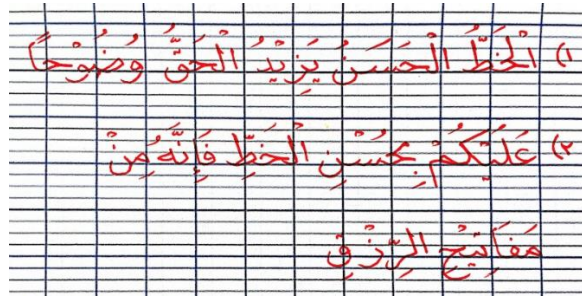 ١) الْخَطُّ الْحَسَنُ يَزِيْدُ الْحَقَّ وُضُوْحًا
٢) عَلَيْكُمْ بِحُسْنِ الْخَطِّ فَإِنَّهُ مِنْ
مَفَاتِيْحِ الرِّزْقِ